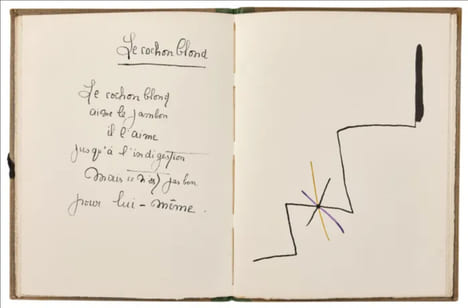 Le cochon blond
Le cochon blond
aime le jambon
il l'aime
jusqu'à l'indigestion
mais ce n'est pas bon
pour lui-même.